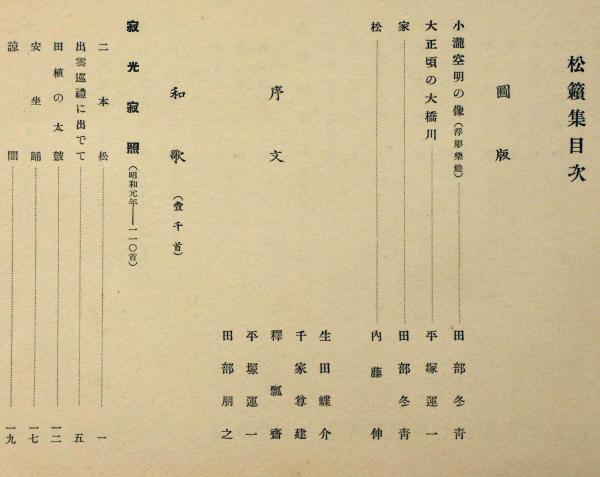 松籟集目次
圖版
小瀧空明の像（浮彫樂燒）……田部冬靑
大正頃の大橋川……平塚運一
家……田部冬靑
松……內藤伸
序文
生田蝶介
千家尊建
釋瓢齋
平塚運一
田部朋之
和歌（壹千首）
寂光寂照（昭和元年——一一〇首）
二本松……一
出雲巡禮に出でて……五
田植の太皷……一二
安坐踊……一七
諒闇……一九